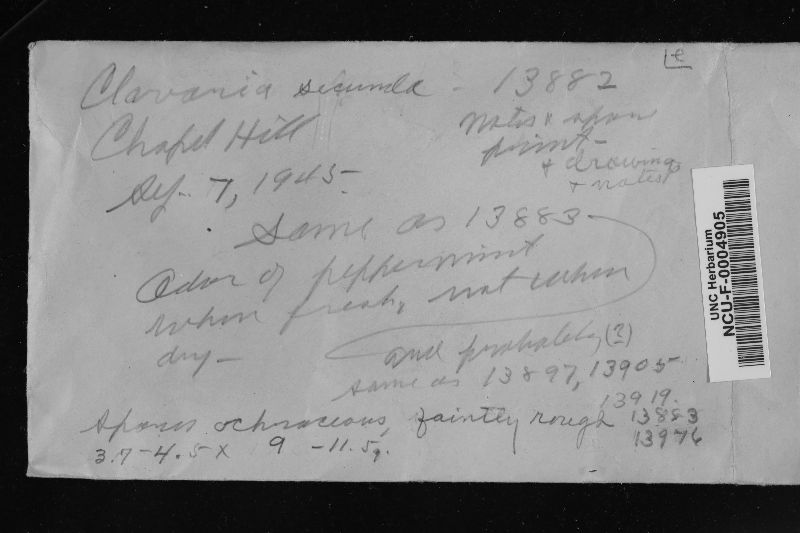 e
Clavaria secunda - 13882
Notes & spore
print -
+ drawings
+ notes
Chapel Hill
Sep. 7, 1945-
Same as 13883-
Odor of peppermint
when fresh, not when
dry -
and probably (?)
same as 13897, 13905
13919.
13883
13976
Spores ochraceous, faintly rough
3.7-4.5 x 9 -11.5
UNC Herbarium
NCU-F-0004905